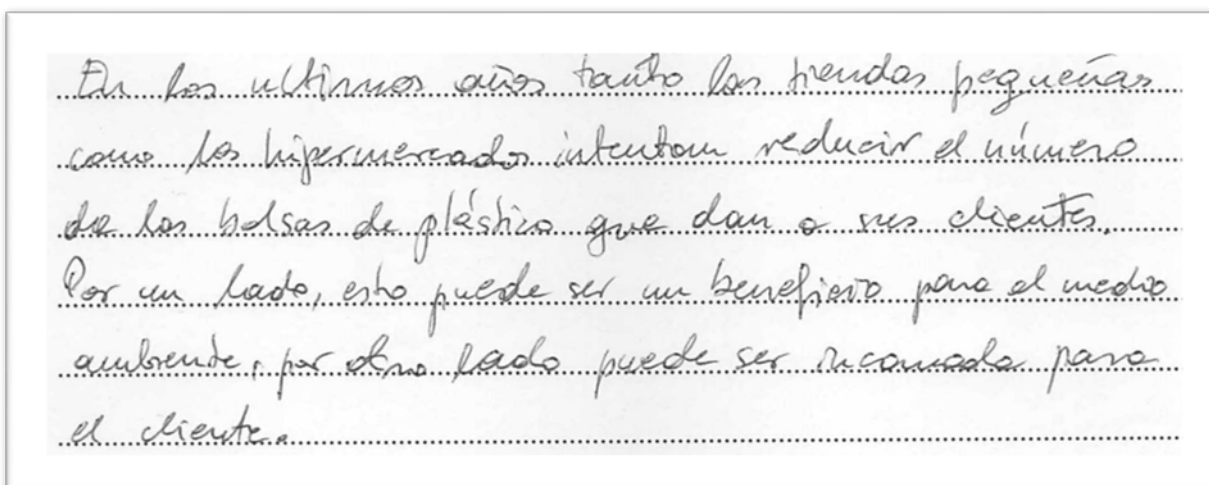 En los ultimos años tanto las tiendas pequeñas
como los hipermercados intentam reducir el número
de las bolsas de plástico que dan a sus clientes.
Por un lado, esto puede ser un beneficio para el medio
ambiente, por otro lado puede ser incomodo para
el cliente.